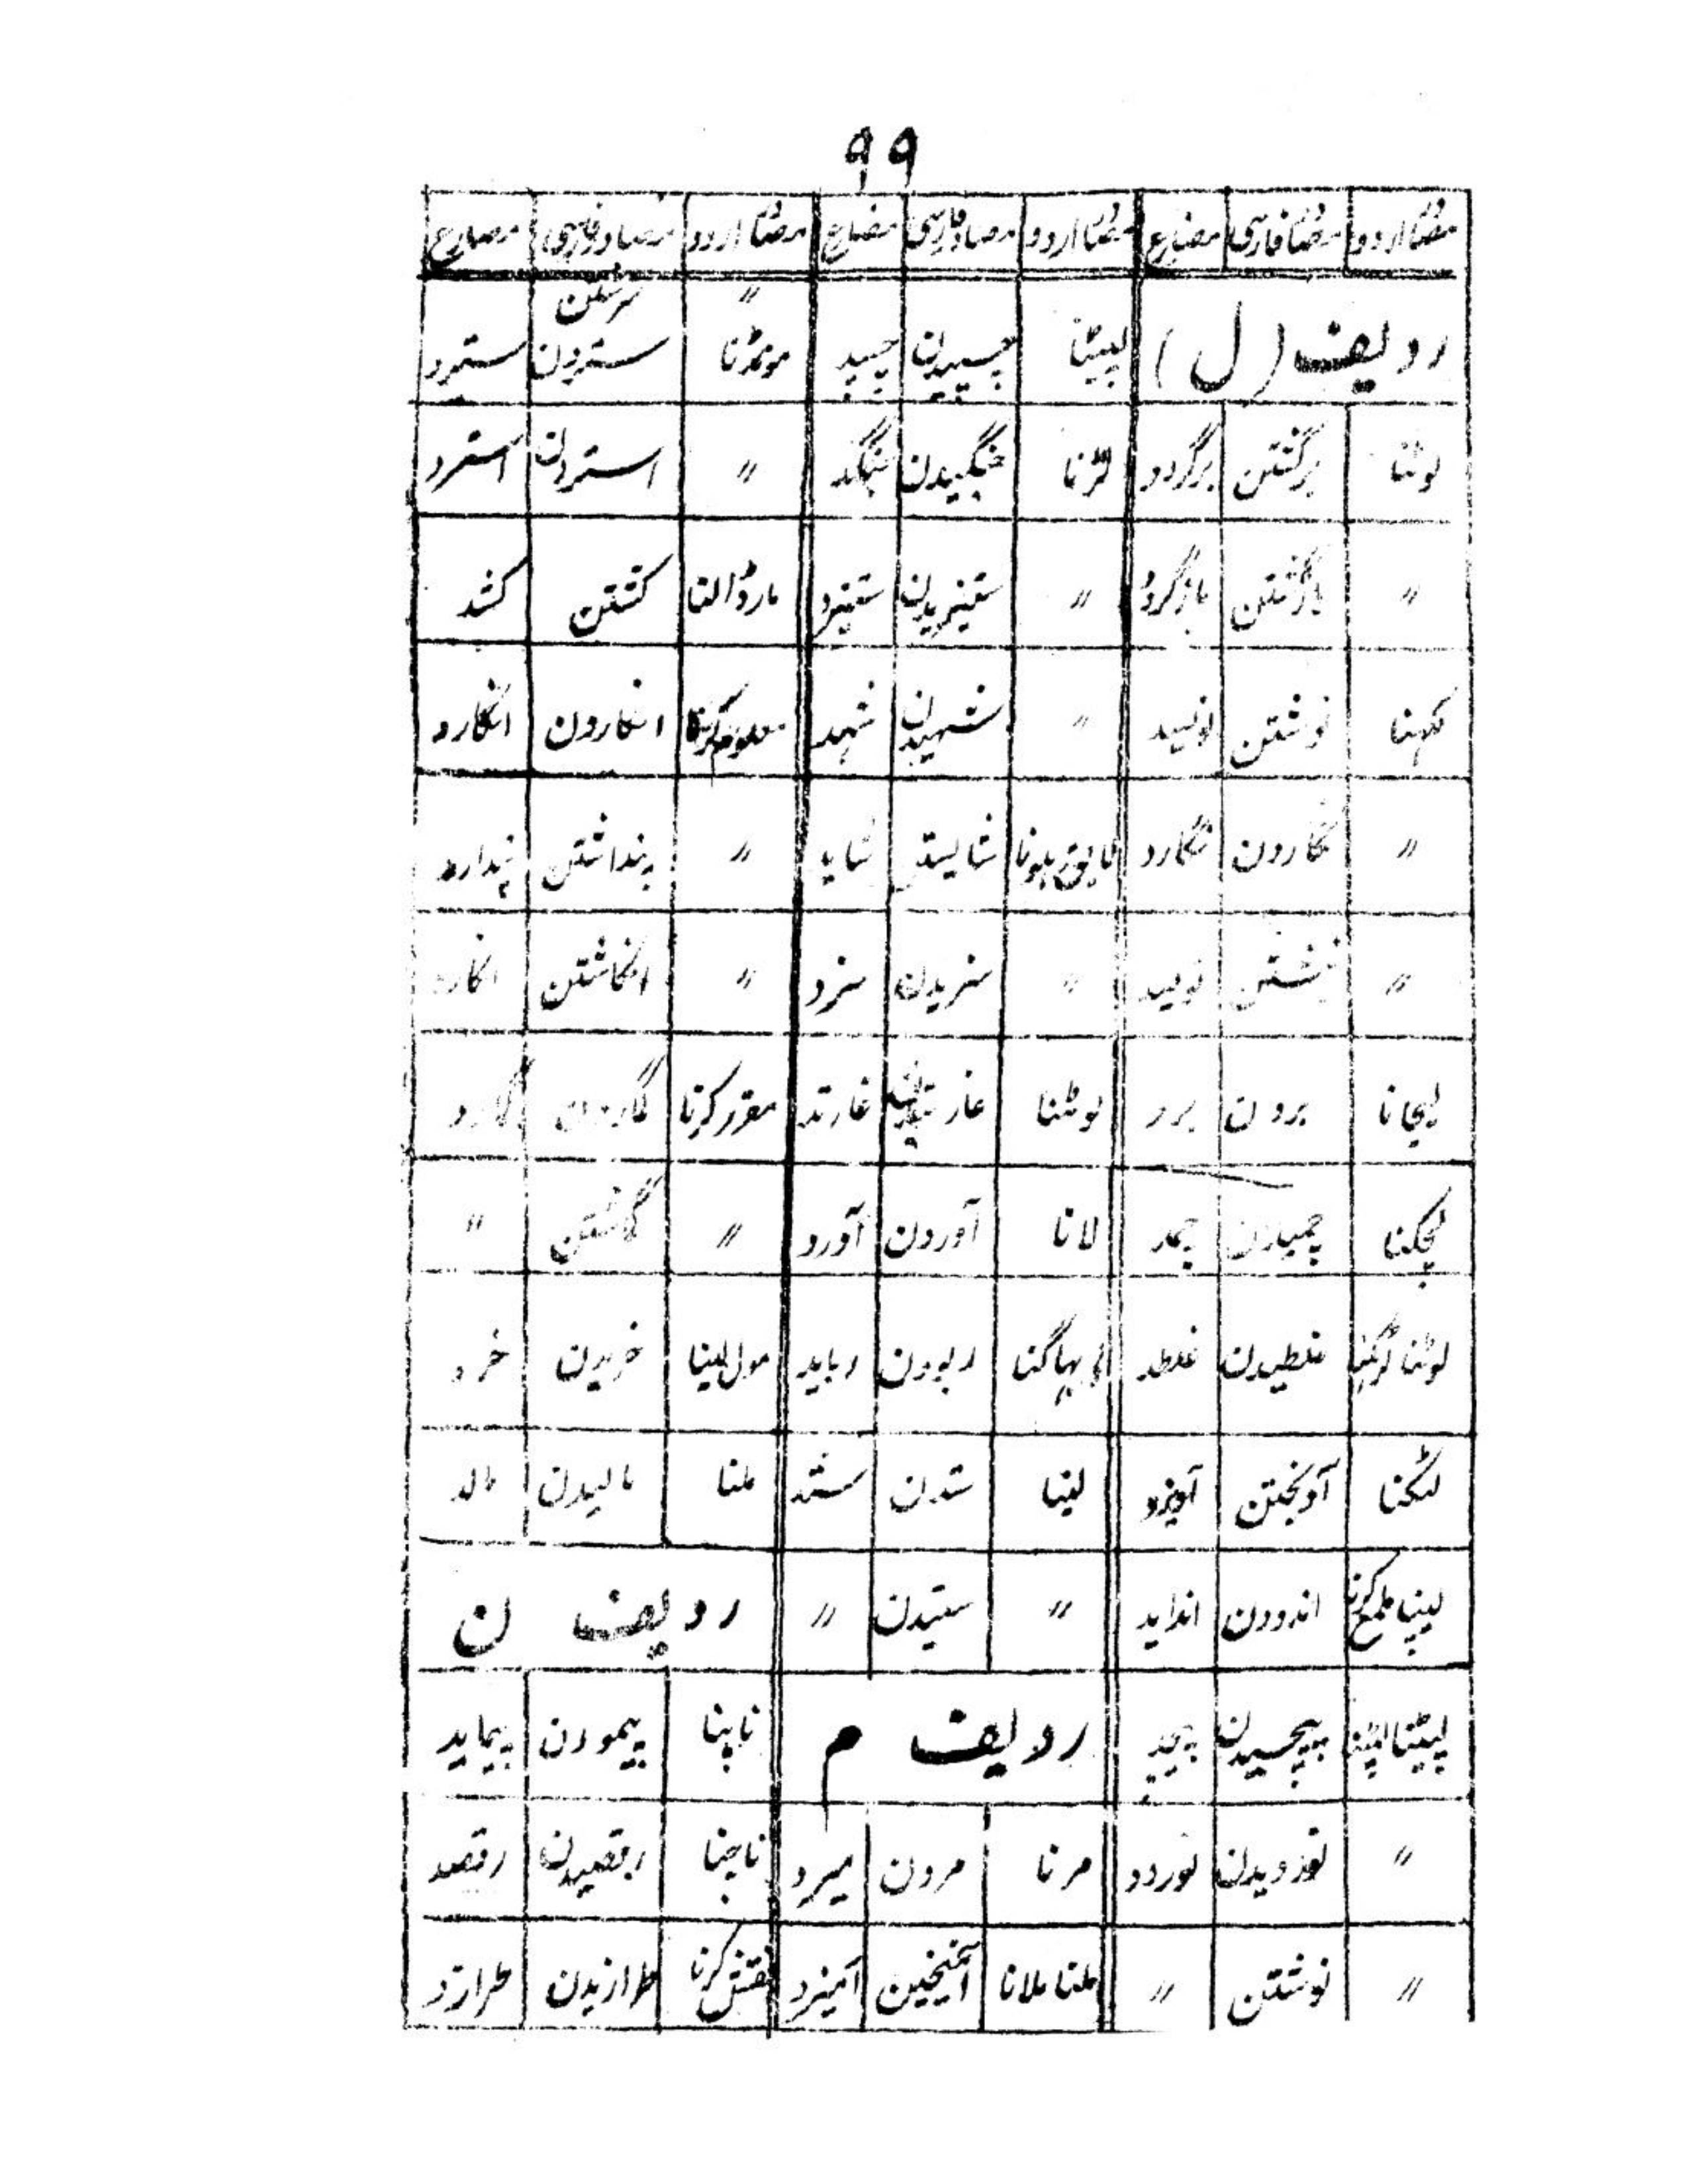 ۹۹
مصادر اردو مصادر فارسی مضارع مصادر اردو مصادر فارسی مضارع مصادر اردو مصادر فارسی مضارع
ردیف (ل) لپیٹنا چسپیدن چسپد 〃 مونڈنا ستردن سترد
لوٹنا برگشتن برگردد لڑنا جنگیدن جنگد 〃 استردن استرد
〃 بازگشتن بازگردد 〃 ستیزیدن ستیزد مارڈالنا کشتن کشد
لکہنا نوشتن نویسد 〃 معلوم کرنا انگاردن انگارد
〃 نگاردن نگارد لایق ہونا شایستن شاید 〃 پنداشتن پندارد
〃 نویسد 〃 سزیدن سزد 〃 انگاشتن
لیجانا بردن برد لوٹنا غارتیدن غارتد مقرر کرنا گماردن گمارد
لچکنا چمیدن چمد لانا آوردن آورد 〃 گماشتن 〃
غلطیدن غلطد لے بہاگنا ربودن رباید مول لینا خریدن خرد
لٹکنا آویختن آویزد لینا ستدن ستد ملنا مالیدن مالد
لیپنا ملمع کرنا اندودن انداید 〃 ستیدن 〃 ردیف ن
لپیٹنا لپٹنا پیچیدن پیچد ردیف م ناپنا پیمودن پیماید
〃 نوردیدن نوردد مرنا مردن میرد ناچنا رقصیدن رقصد
〃 نوشتن 〃 ملنا ملانا آمیختن آمیزد نقش کرنا طرازیدن طرازد